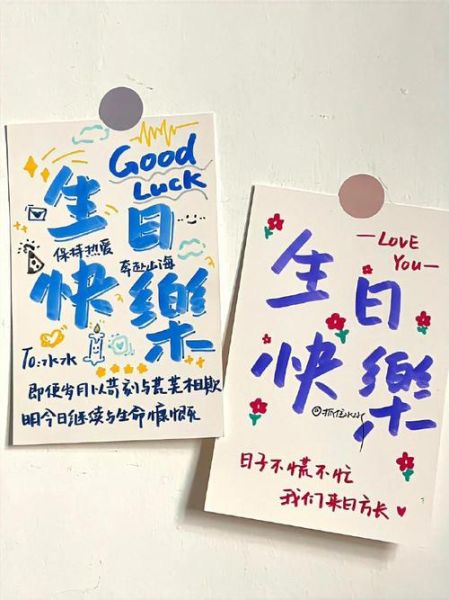 Good
Luck
生日
保持热爱
奔赴山海
快樂
To:水水
即便岁月以苛刻与荒芜相欺
明今日继续与生命慷慨
—LOVE
YOU—
生日
快樂
日子不慌不忙
我们来日方长